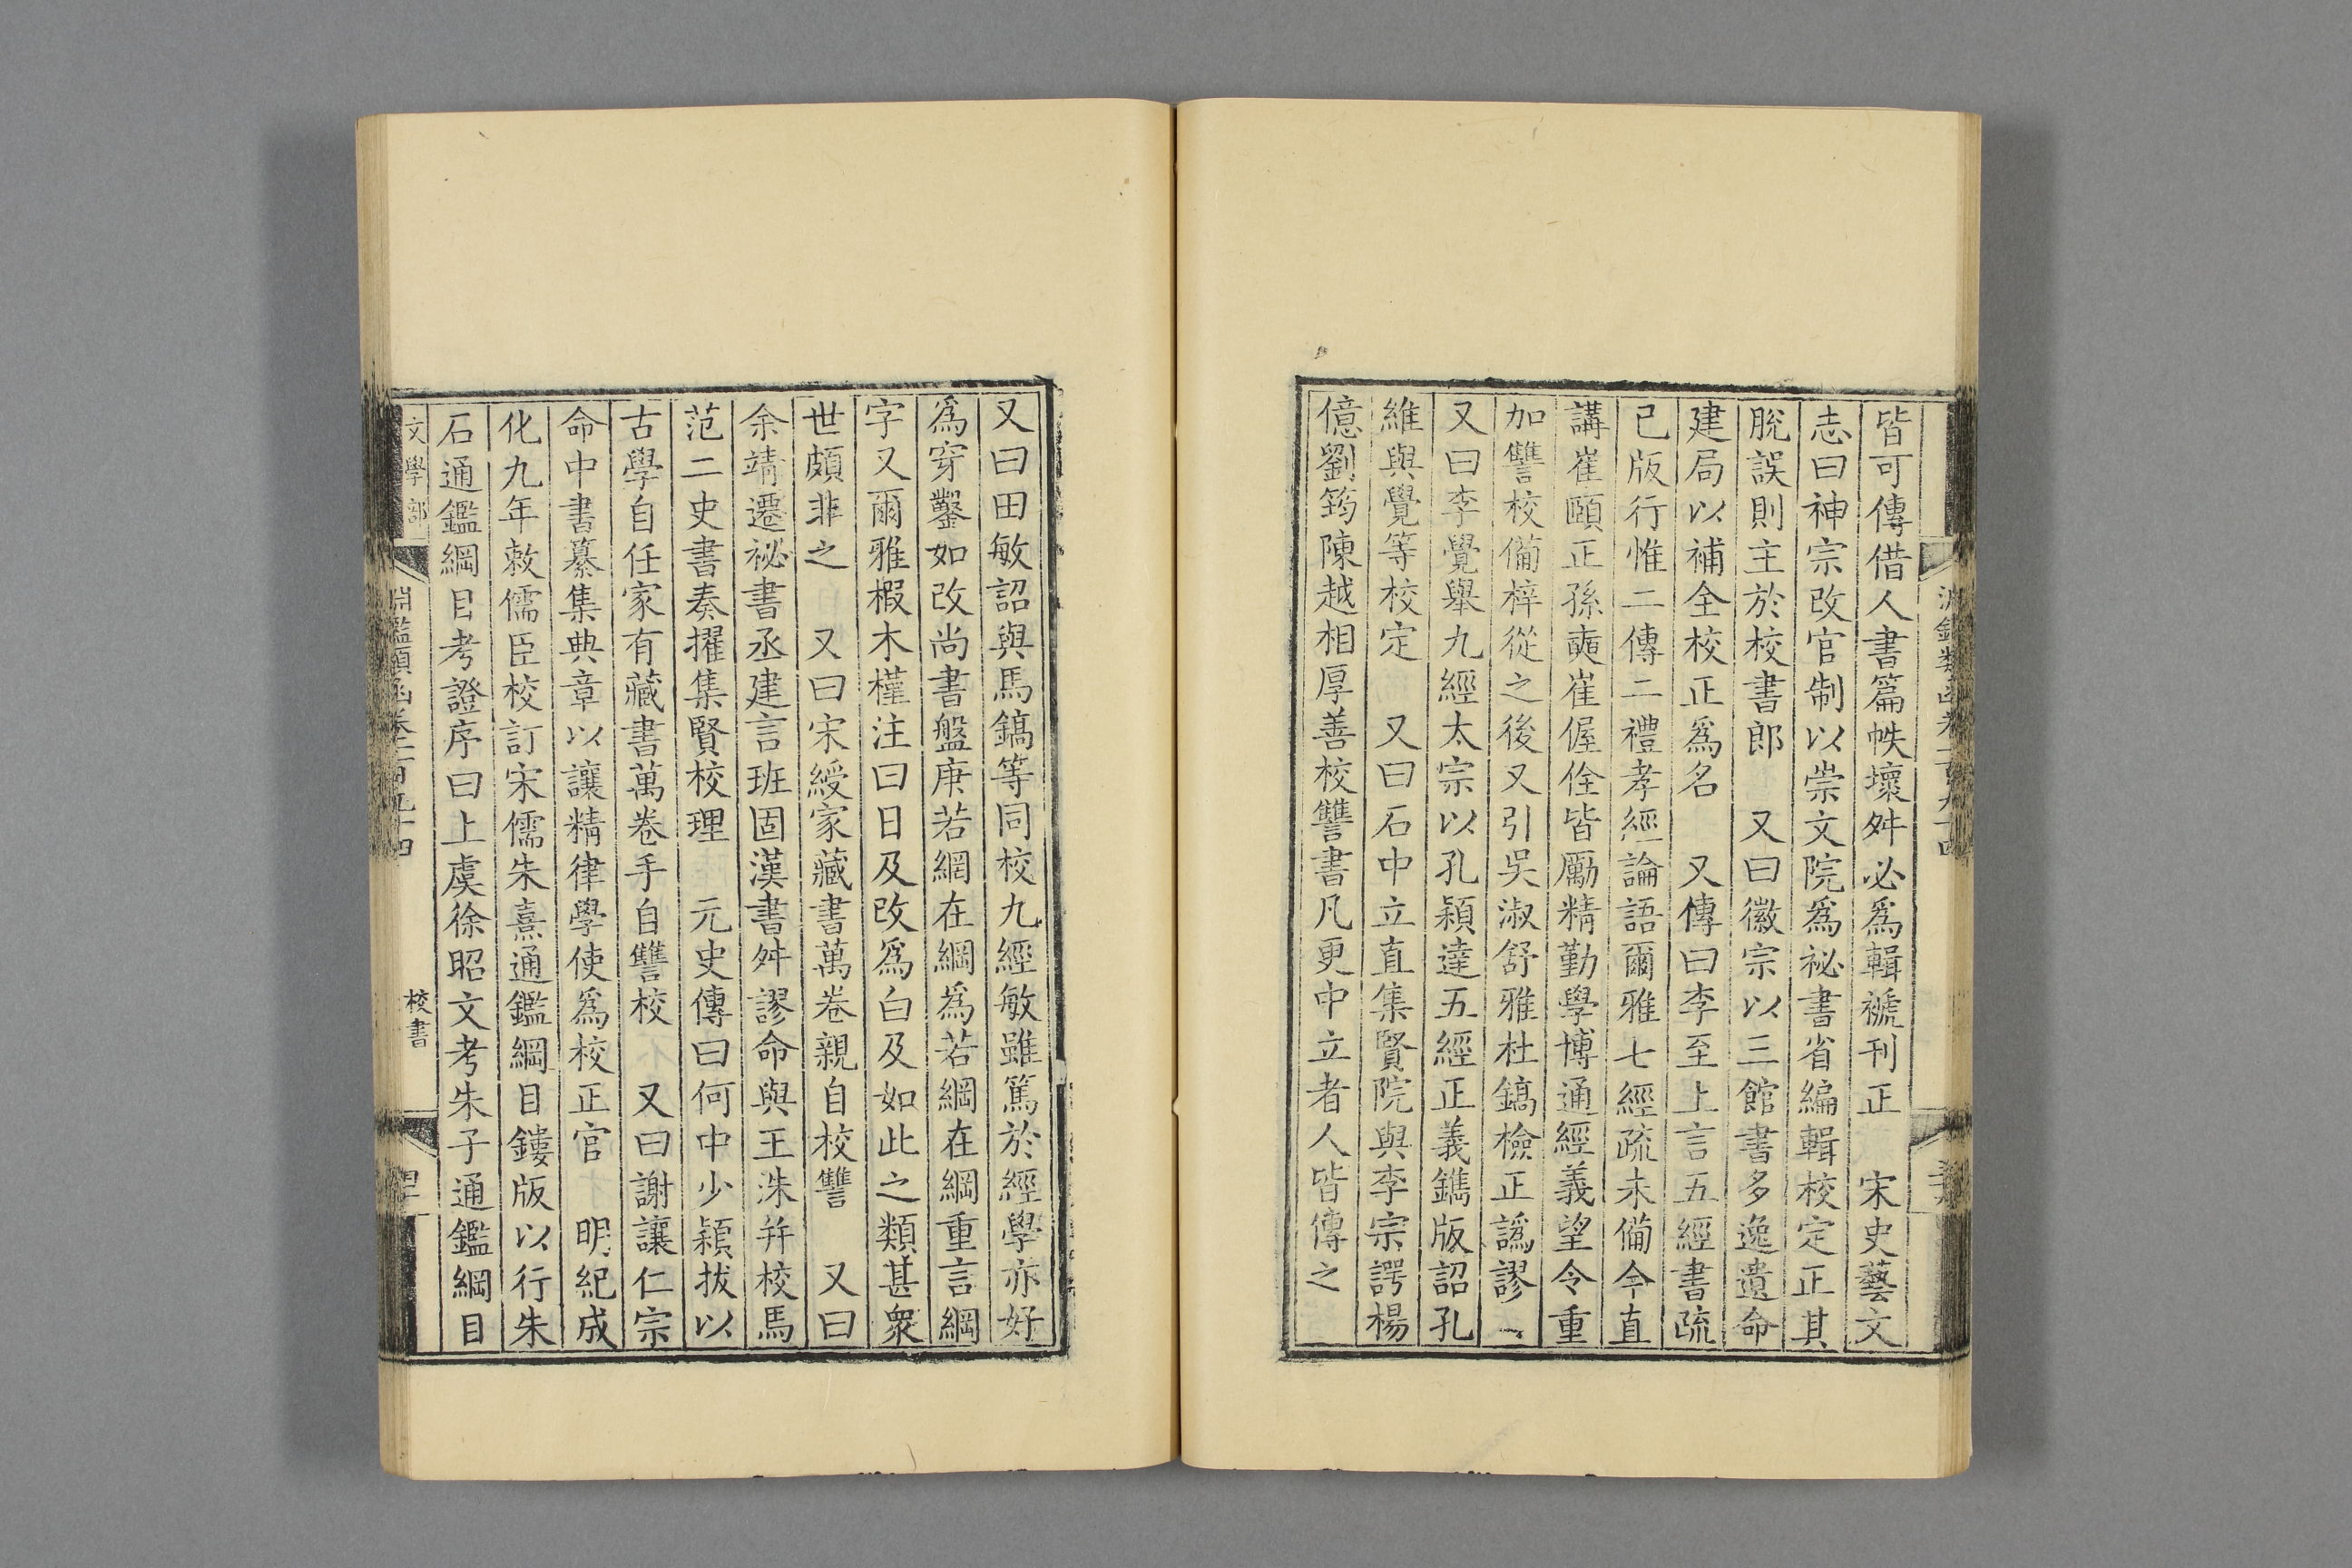 皆可傳借人書篇帙壞舛必爲輯褫刊正　宋史藝文
志曰神宗改官制以崇文院爲祕書省編輯校定正其
脫誤則主於校書郎　又曰徽宗以三館書多逸遺命
建局以補全校正爲名　又傳曰李至上言五經書疏
已版行惟二傳二禮孝經論語爾雅七經疏未備今直
講崔頤正孫奭崔偓佺皆勵精勤學博通經義望令重
加讐校備梓從之後又引吳淑舒雅杜鎬檢正譌謬
又曰李覺舉九經太宗以孔穎達五經正義鐫版詔孔
維與覺等校定　又曰石中立直集賢院與李宗諤楊
億劉筠陳越相厚善校讐書凡更中立者人皆傳之
又曰田敏詔與馬鎬等同校九經敏雖篤於經學亦好
爲穿鑿如改尚書盤庚若網在綱爲若綱在綱重言綱
字又爾雅椴木槿注曰日及改爲白及如此之類甚衆
世頗非之　又曰宋綬家藏書萬卷親自校讐　又曰
余靖遷祕書丞建言班固漢書舛謬命與王洙幷校馬
范二史書奏擢集賢校理　元史傳曰何中少穎拔以
古學自任家有藏書萬卷手自讐校　又曰謝讓仁宗
命中書纂集典章以讓精律學使爲校正官　明紀成
化九年敕儒臣校訂宋儒朱熹通鑑綱目鏤版以行朱
石通鑑綱目考證序曰上虞徐昭文考朱子通鑑綱目
文學部
淵鑑類函卷一百九十四
校書